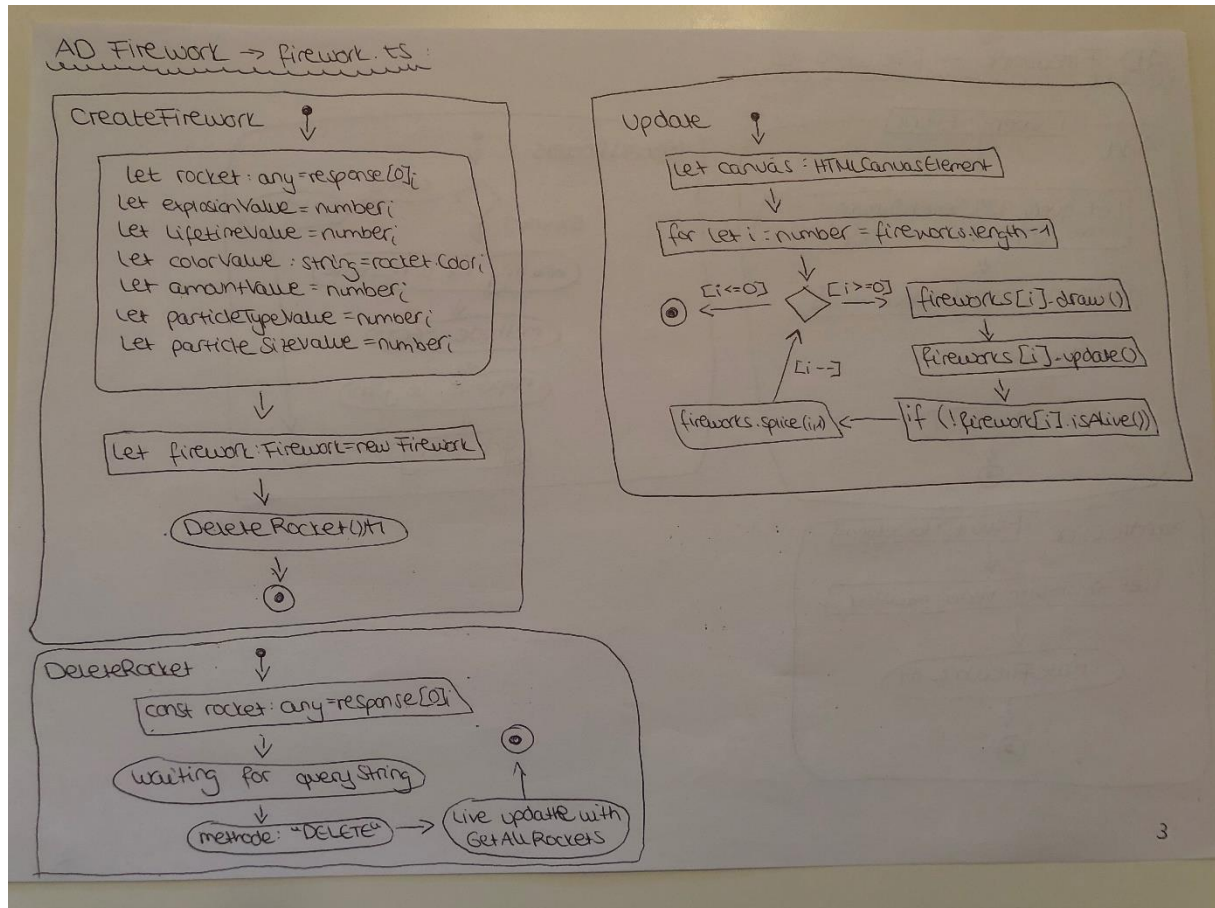 AD Firework → firework.ts:
CreateFirework
let rocket: any = response[0];
let explosionValue = number;
let lifetimeValue = number;
let colorValue: string = rocket.Color;
let amountValue = number;
let particleTypeValue = number;
let particle SizeValue = number;
let firework: Firework = new Firework
DeleteRocket()
DeleteRocket
const rocket: any = response[0];
waiting for queryString
methode: "DELETE"
Live update with
GetAllRockets
Update
let canvas: HTMLCanvasElement
for let i: number = fireworks.length-1
[i<=0]
[i>=0]
fireworks[i].draw()
fireworks[i].update()
if (!firework[i].isAlive())
fireworks.splice(i,1)
[i--]
3